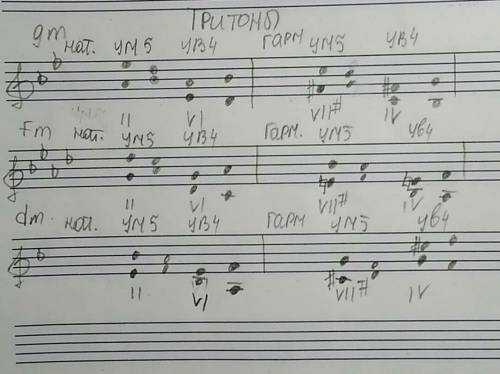 ТРИТОНЫ
gm нат. УМ5 УВ4 ГАРМ УМ5 УВ4
II VI VII# IV
Fm нат. УМ5 УВ4 ГАРМ. УМ5 Ув4
II VI VII# IV
dm. нат. УМ5 УВ4 ГАРМ УМ5 Ув4
II VI VII# IV